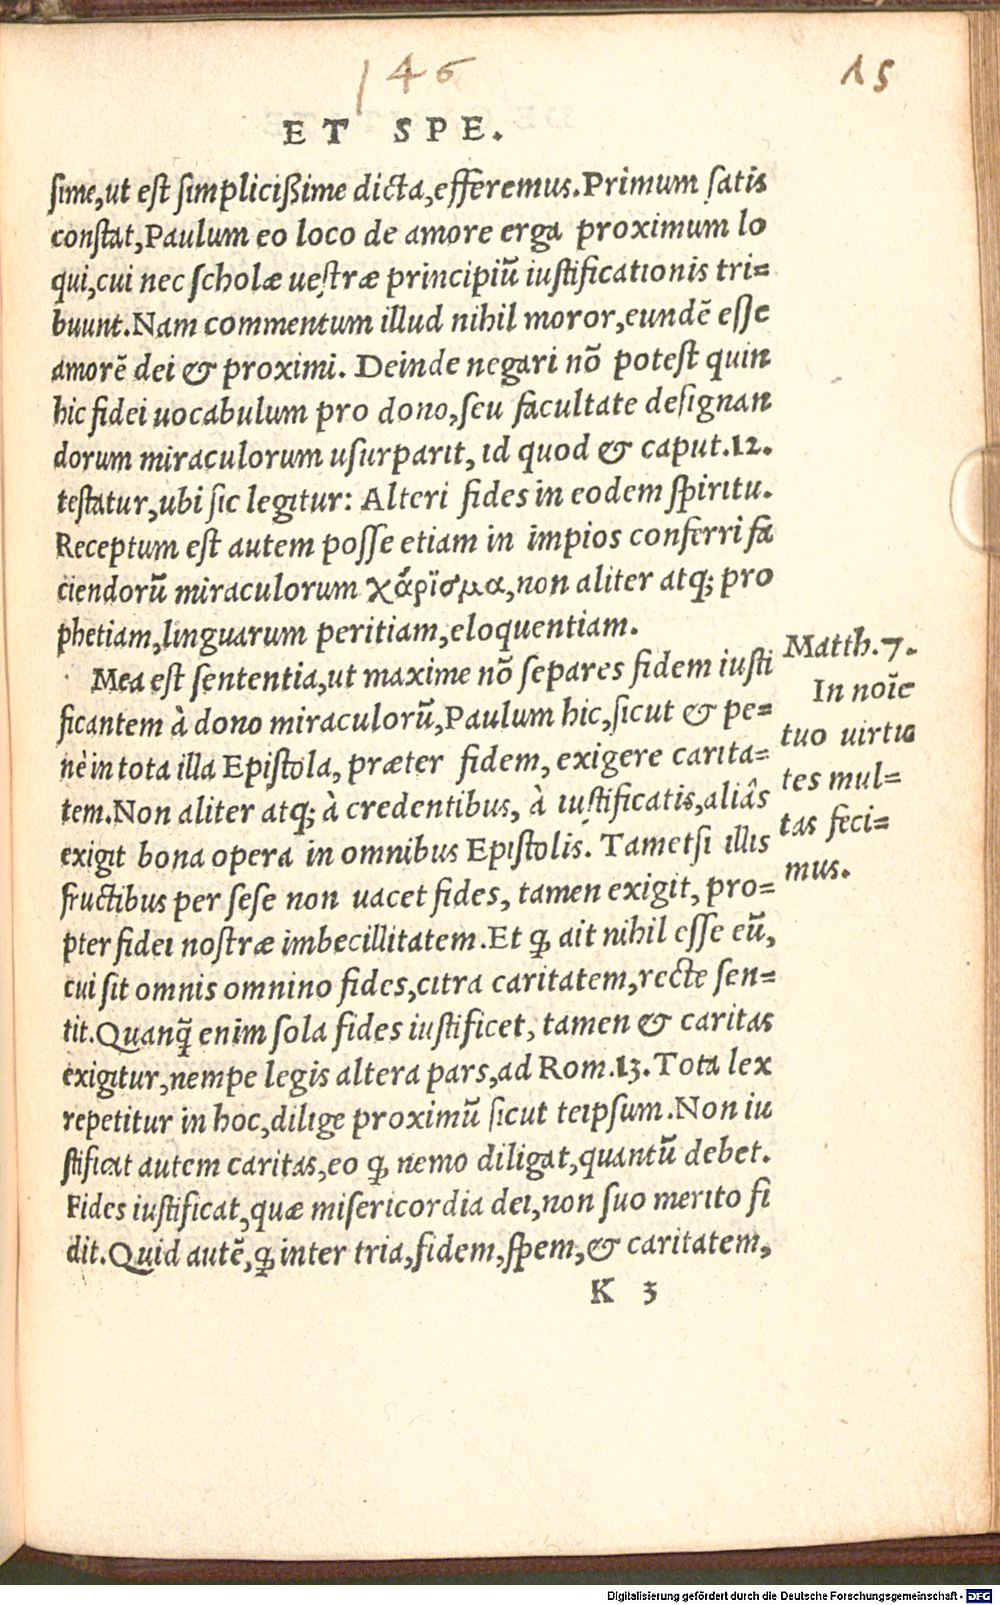 146
15
ET SPE.
sime,ut est simplicißime dicta,efferemus.Primum satis
constat,Paulum eo loco de amore erga proximum lo
qui,cui nec scholæ uestræ principiũ iustificationis tri=
buunt.Nam commentum illud nihil moror,eundẽ esse
amorẽ dei & proximi. Deinde negari nõ potest quin
hic fidei uocabulum pro dono,seu facultate designan
dorum miraculorum usurparit, id quod & caput.12.
testatur,ubi sic legitur: Alteri fides in eodem spiritu.
Receptum est autem posse etiam in impios conferri fa
ciendorũ miraculorum χάρϊσμα,non aliter atq; pro
phetiam,linguarum peritiam,eloquentiam.
Mea est sententia,ut maxime nõ separes fidem iusti
ficantem à dono miraculorũ,Paulum hic,sicut & pe=
nè in tota illa Epistola, præter fidem, exigere carita=
tem.Non aliter atq; à credentibus, à iustificatis,aliâs
exigit bona opera in omnibus Epistolis. Tametsi illis
fructibus per sese non uacet fides, tamen exigit, pro=
pter fidei nostræ imbecillitatem.Et ꝙ ait nihil esse eũ,
cui sit omnis omnino fides,citra caritatem,recte sen=
tit.Quanq̃ enim sola fides iustificet, tamen & caritas
exigitur,nempe legis altera pars,ad Rom.13.Tota lex
repetitur in hoc,dilige proximũ sicut teipsum.Non iu
stificat autem caritas,eo ꝙ nemo diligat,quantũ debet.
Fides iustificat,quæ misericordia dei,non suo merito fi
dit.Quid autẽ,ꝙ inter tria,fidem,spem,& caritatem,
K 3
Matth.7.
In noĩe
tuo uirtu
tes mul=
tas feci=
mus.
Digitalisierung gefördert durch die Deutsche Forschungsgemeinschaft - DFG